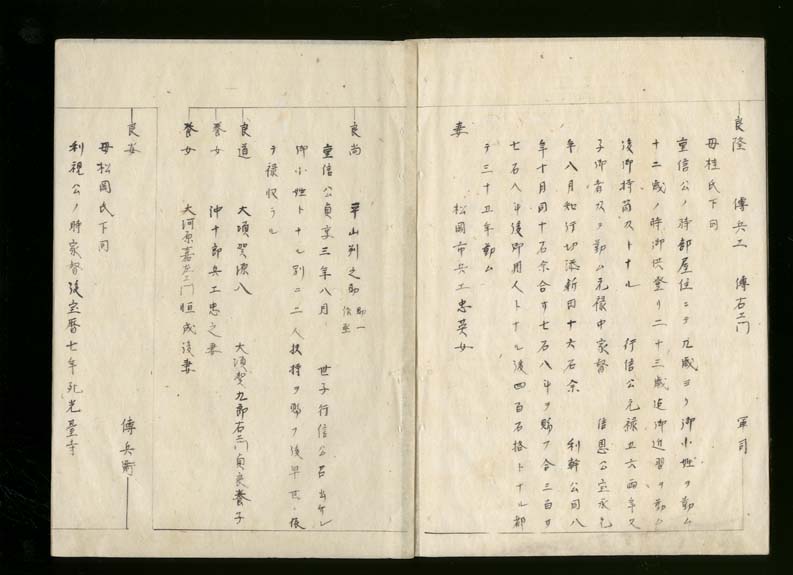 良隆 傳兵エ 傳右エ門 軍司
母桂氏下同
重信公ノ時部屋住ニテ九歳ヨリ御小姓ヲ勤ム
十二歳ノ時御供登リ二十三歳迠御近習ヲ勤ム
後御持筒頭トナル 行信公元禄五六両年又
子御者頭ヲ勤ム元禄中家督 信恩公宝永元
年八月知行切添新田十六石余 利幹公同八
年十月同十石余合テ七石八斗ヲ賜フ合三百廿
七石八斗後御用人トナル後四百石格トナル都
テ三十五年勤ム
妻 松岡市兵エ忠英女
良尚 平山別之助
重信公貞享三年八月 世子行信公召出サレ
御小姓トナル別ニ二人扶持ヲ賜フ後早世依
テ禄収ラル
良道 大須賀源八 大須賀九郎右エ門貞良養子
養女 沖十郎兵エ忠之妻
養女 大河原嘉左エ門恒成後妻
良安 傳兵衛
母松岡氏下同
利視公ノ時家督後宝暦七年死光臺寺